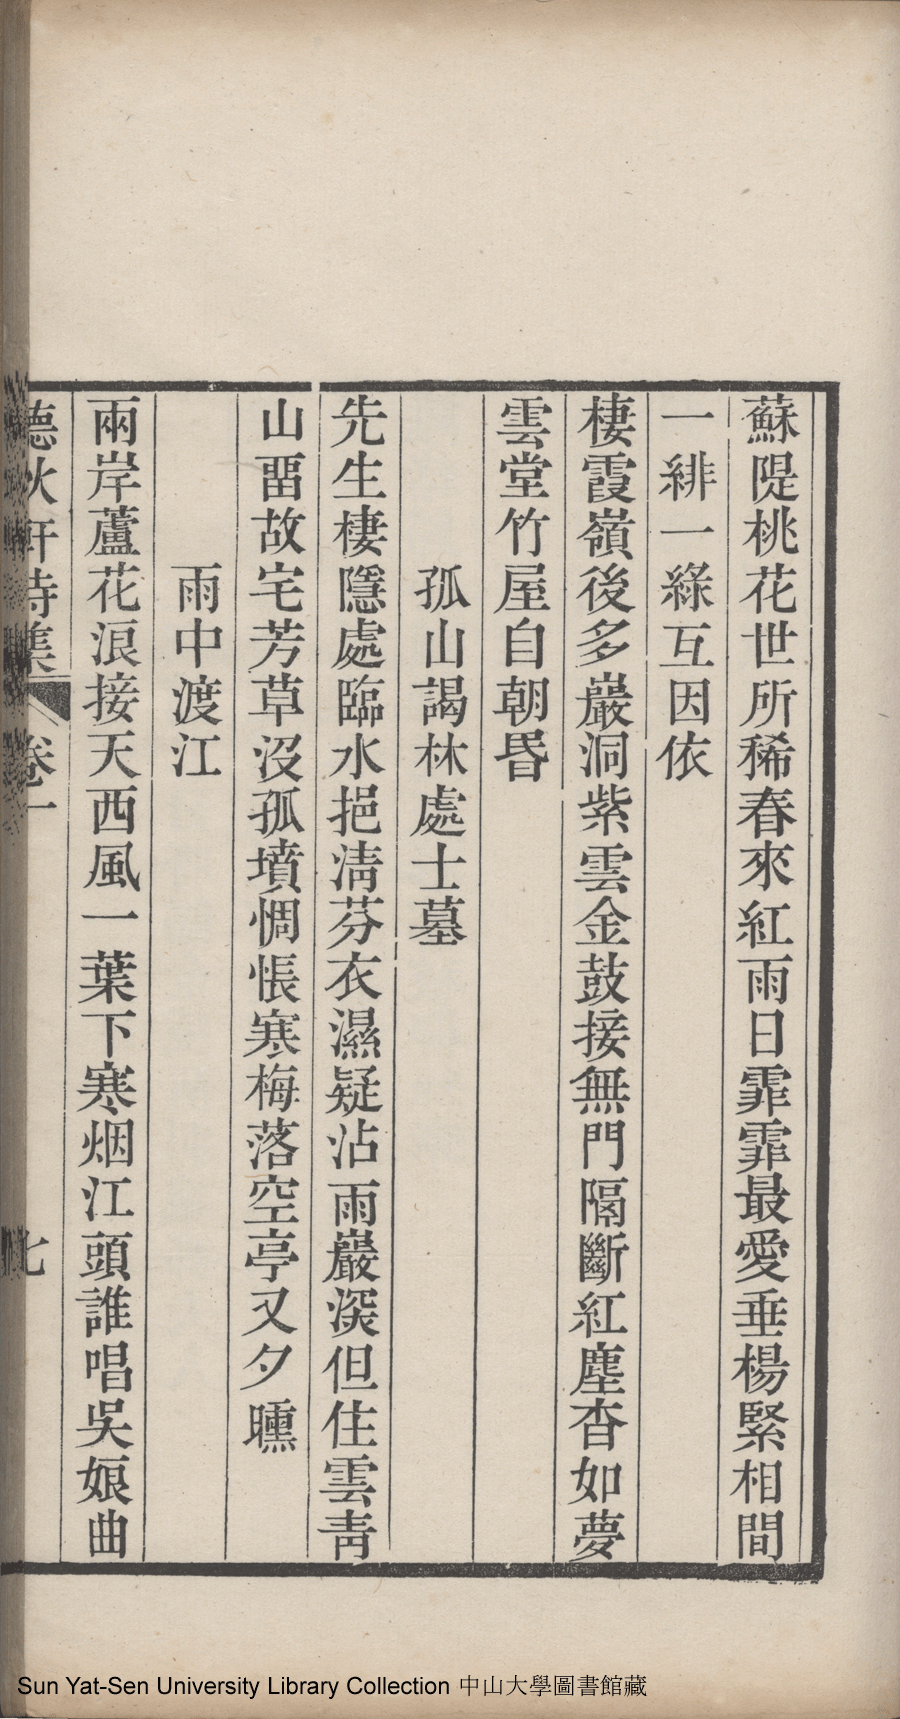 蘇隄桃花世所稀春來紅雨日霏霏最愛垂楊緊相間
一緋一綠互因依
棲霞嶺後多巖洞紫雲金鼓接無門隔斷紅塵杳如夢
雲堂竹屋自朝昏
孤山謁林處士墓
先生棲隱處臨水挹清芬衣濕疑沾雨巖深但住雲靑
山畱故宅芳草沒孤墳惆悵寒梅落空亭又夕曛
雨中渡江
兩岸蘆花浪接天西風一葉下寒烟江頭誰唱吳娘曲
聽秋軒詩集 卷一 七
Sun Yat-Sen University Library Collection 中山大學圖書館藏